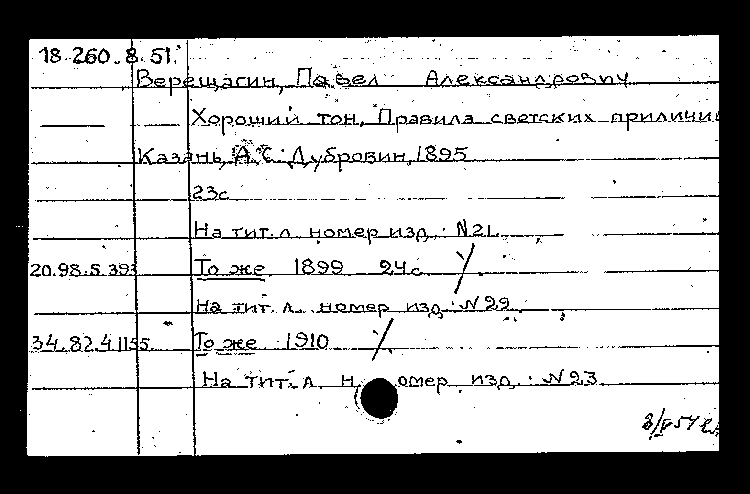 18.260.8.51.
Верещагин, Павел Александрович
Хороший тон. Правила светских приличи
Казань, А.С. Дубровин, 1895
23с
На тит. л. номер изд.: N 21.
20.98.5.393 То же 1899 24 с
На тит. л. номер изд.: N 29.
34.82.4.1155 То же 1910
На тит. л. номер изд.: N 23.